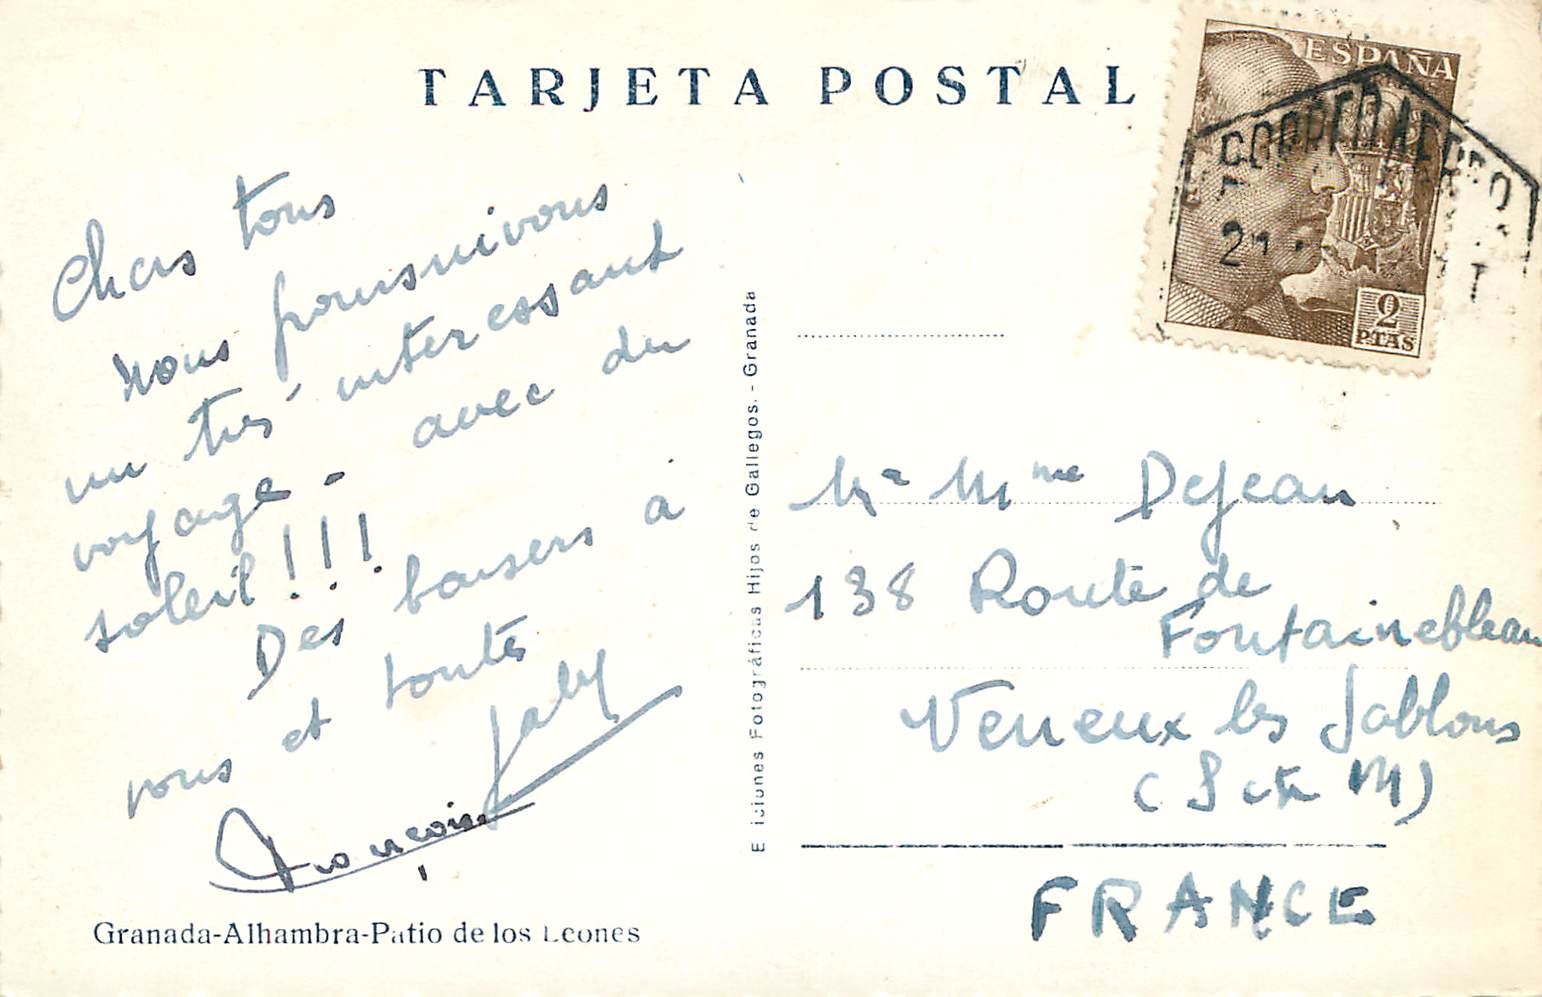 TARJETA POSTAL
ESPAÑA
CORREO AEREO
2
2
PTAS
Chers tous
Nous poursuivons
un très interessant
voyage - avec du
soleil !!!
Des baisers à
vous et toute
Gaby
François
Granada-Alhambra-Patio de los Leones
Ediciones Fotográficas Hijos de Gallegos. - Granada
Mr Mme DeJean
138 Route de
Fontainebleau
Veneux les Sablons
(S et M)
FRANCE